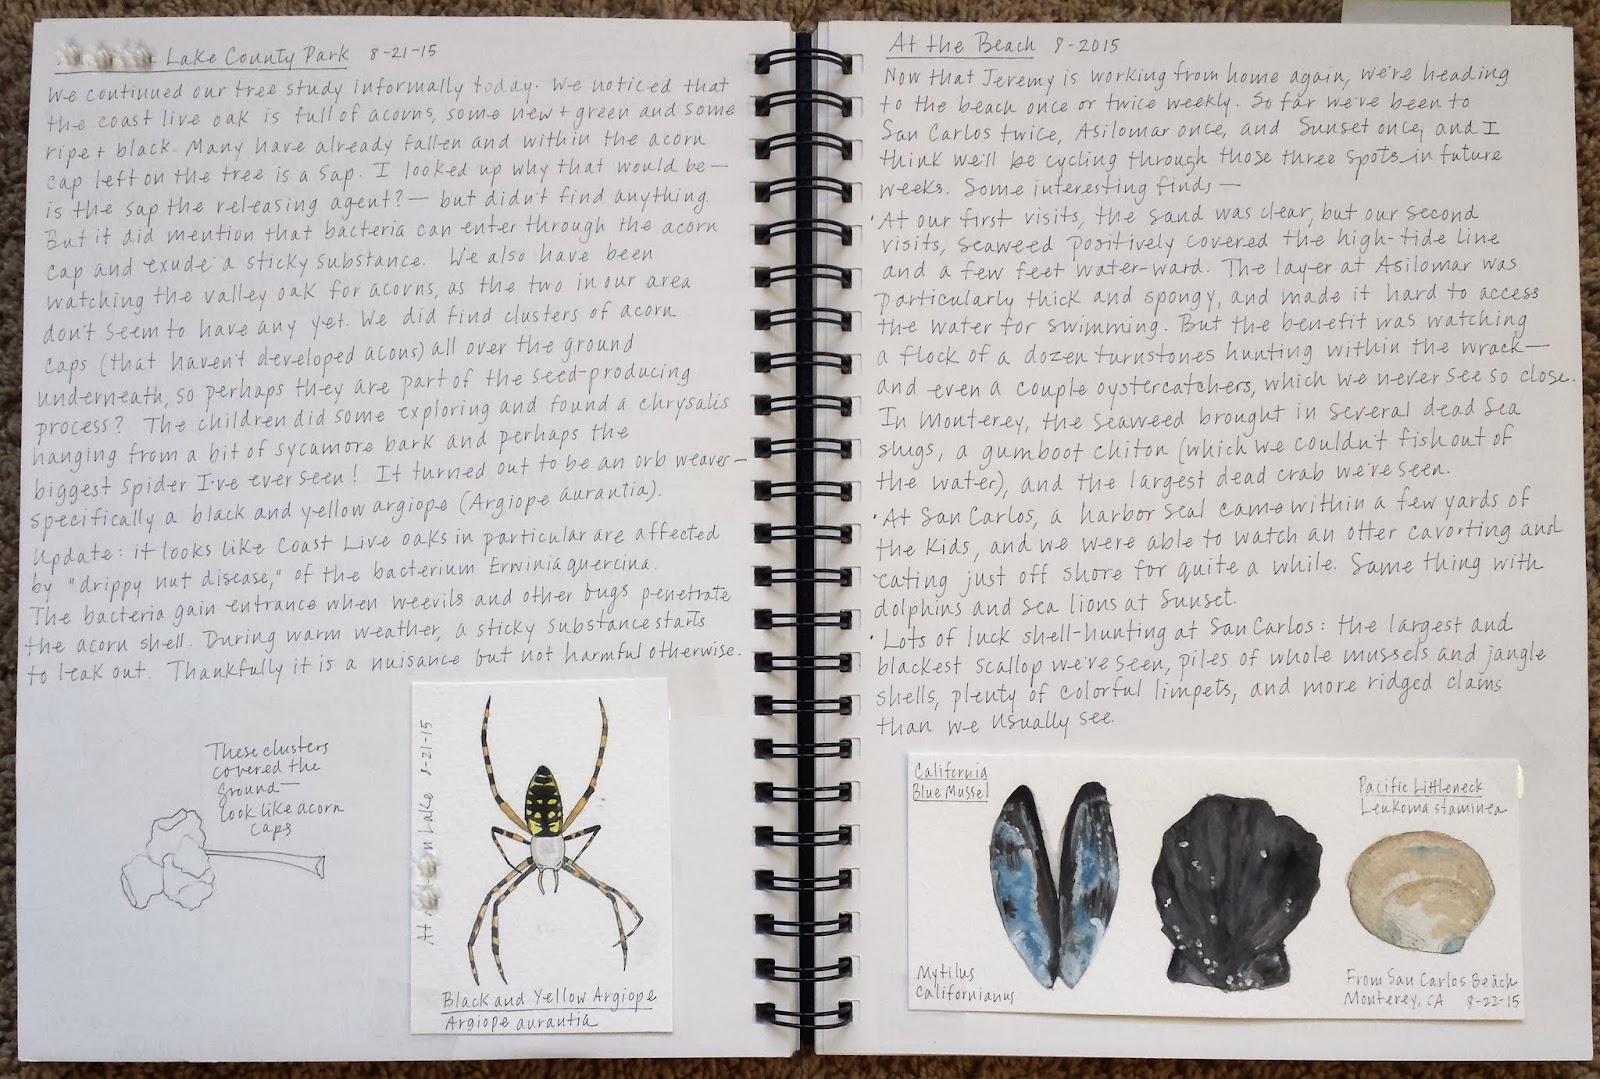 Lake County Park 8-21-15
We continued our tree study informally today. We noticed that
the coast live oak is full of acorns, some new + green and some
ripe + black. Many have already fallen and within the acorn
cap left on the tree is a sap. I looked up why that would be—
is the sap the releasing agent?— but didn't find anything.
But it did mention that bacteria can enter through the acorn
cap and exude a sticky substance. We also have been
watching the valley oak for acorns, as the two in our area
don't seem to have any yet. We did find clusters of acorn
caps (that haven't developed acons) all over the ground
underneath, so perhaps they are part of the seed-producing
process? The children did some exploring and found a chrysalis
hanging from a bit of sycamore bark and perhaps the
biggest spider I've ever seen! It turned out to be an orb weaver—
specifically a black and yellow argiope (Argiope aurantia).
Update: it looks like Coast Live oaks in particular are affected
by "drippy nut disease," of the bacterium Erwinia quercina.
The bacteria gain entrance when weevils and other bugs penetrate
the acorn shell. During warm weather, a sticky substance starts
to leak out. Thankfully it is a nuisance but not harmful otherwise.
These clusters
covered the
ground—
look like acorn
caps
At Lake 8-21-15
Black and Yellow Argiope
Argiope aurantia
At the Beach 8-2015
Now that Jeremy is working from home again, we're heading
to the beach once or twice weekly. So far we've been to
San Carlos twice, Asilomar once, and Sunset once, and I
think we'll be cycling through those three spots in future
weeks. Some interesting finds—
• At our first visits, the sand was clear, but our second
visits, seaweed positively covered the high-tide line
and a few feet water-ward. The layer at Asilomar was
particularly thick and spongy, and made it hard to access
the water for swimming. But the benefit was watching
a flock of a dozen turnstones hunting within the wrack—
and even a couple oystercatchers, which we never see so close.
In Monterey, the seaweed brought in several dead sea
slugs, a gumboot chiton (which we couldn't fish out of
the water), and the largest dead crab we've seen.
• At San Carlos, a harbor seal came within a few yards of
the kids, and we were able to watch an otter cavorting and
eating just off shore for quite a while. Same thing with
dolphins and sea lions at Sunset.
• Lots of luck shell-hunting at San Carlos: the largest and
blackest scallop we've seen, piles of whole mussels and jangle
shells, plenty of colorful limpets, and more ridged clams
than we usually see.
California
Blue Mussel
Mytilus
Californianus
Pacific Littleneck
Leukoma staminea
From San Carlos Beach
Monterey, CA 8-22-15